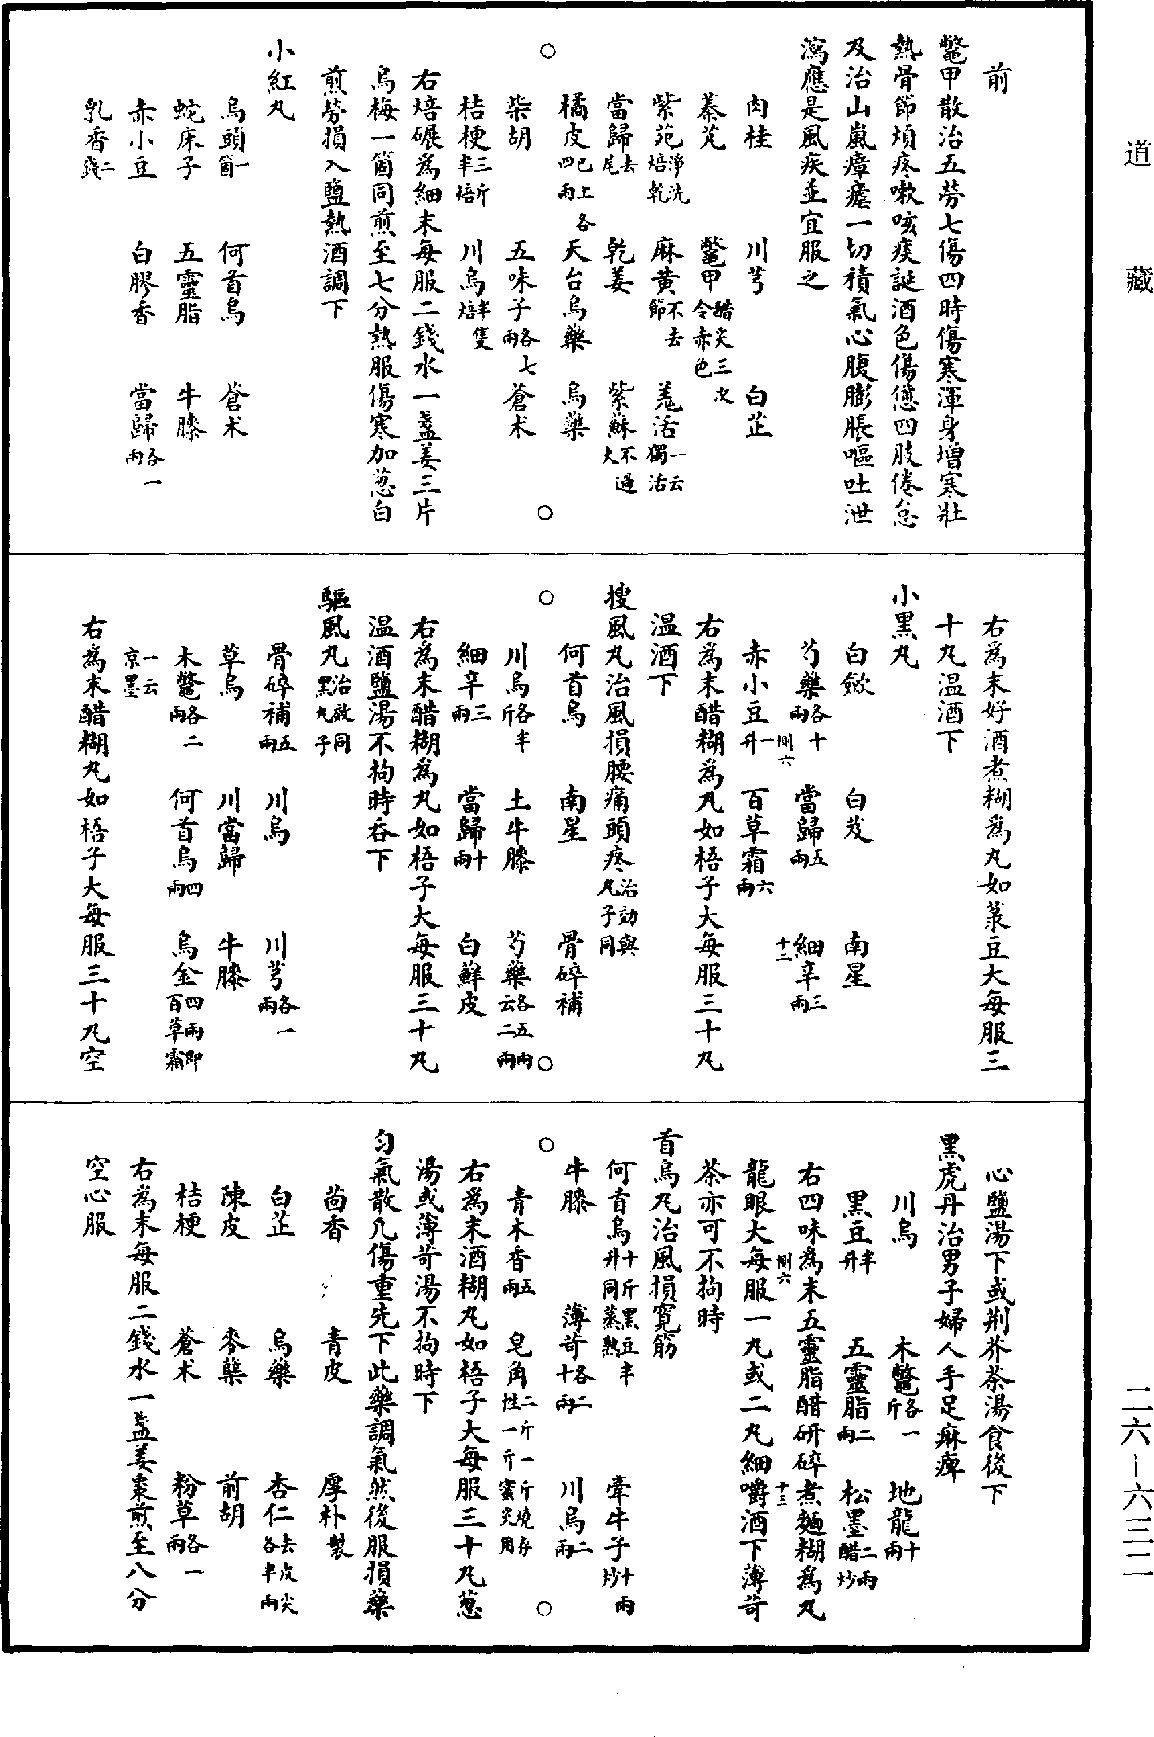 道藏
前
鼈甲散治五勞七傷四時傷寒渾身增寒壯
熱骨節煩疼嗽咳痰涎酒色傷憊四肢倦怠
及治山嵐瘴瘧一切積氣心腹膨脹嘔吐泄
瀉應是風疾並宜服之
肉桂 川芎 白芷
秦芃 鼈甲醋炙三次令赤色
紫苑淨洗焙乾 麻黄不去節 羗活一云獨活
當歸去尾 乾姜 紫蘇不過火
橘皮已上各四兩 天台烏藥 烏藥
柴胡 五味子各七兩 蒼术
桔梗三斤半焙 川烏半隻焙
右焙碾為細末每服二錢水一盞姜三片
烏梅一箇同煎至七分熱服傷寒加葱白
煎勞損入鹽熱酒調下
小紅丸
烏頭一箇 何首烏 蒼术
蛇床子 五靈脂 牛膝
赤小豆 白膠香 當歸各一兩
乳香二錢
右為末好酒煮糊為丸如菉豆大每服三
十丸温酒下
小黑丸
白斂 白芨 南星
芍藥各十兩 當歸五兩 細辛三兩
赤小豆一升 百草霜六兩
右為末醋糊為丸如梧子大每服三十丸
温酒下
搜風丸治風損腰痛頭疼治効與丸子同
何首烏 南星 骨碎補
川烏各半斤 土牛膝 芍藥各五兩云二兩
細辛三兩 當歸十兩 白蘚皮
右為末醋糊為丸如梧子大每服三十丸
温酒鹽湯不拘時吞下
驅風丸治效同黑丸子
骨碎補五兩 川烏 川芎各一兩
草烏 川當歸 牛膝
木鼈各二兩 何首烏四兩 烏金四兩即百草霜
一云京墨
右為末醋糊丸如梧子大每服三十丸空
心鹽湯下或荆芥茶湯食後下
黑虎丹治男子婦人手足痳痺
川烏 木鼈各一斤 地龍十兩
黑豆半升 五靈脂二兩 松墨二兩醋炒
右四味為末五靈脂醋研碎煮麵糊為丸
龍眼大每服一丸或二丸細嚼酒下薄苛
茶亦可不拘時
首烏丸治風損寬筋
何首烏十斤黑豆半升同蒸熟 牽牛子十兩炒
牛膝 薄苛各二十兩 川烏二兩
青木香五兩 皂角二斤一斤燒存性一斤蜜炙用
右為末酒糊丸如梧子大每服三十丸葱
湯或薄苛湯不拘時下
勻氣散凡傷重先下此藥調氣然後服損藥
茴香 青皮 厚朴製
白芷 烏藥 杏仁去皮尖各半兩
陳皮 麥蘗 前胡
桔梗 蒼术 粉草各一兩
右為末每服二錢水一盞姜棗煎至八分
空心服
二六—六三二